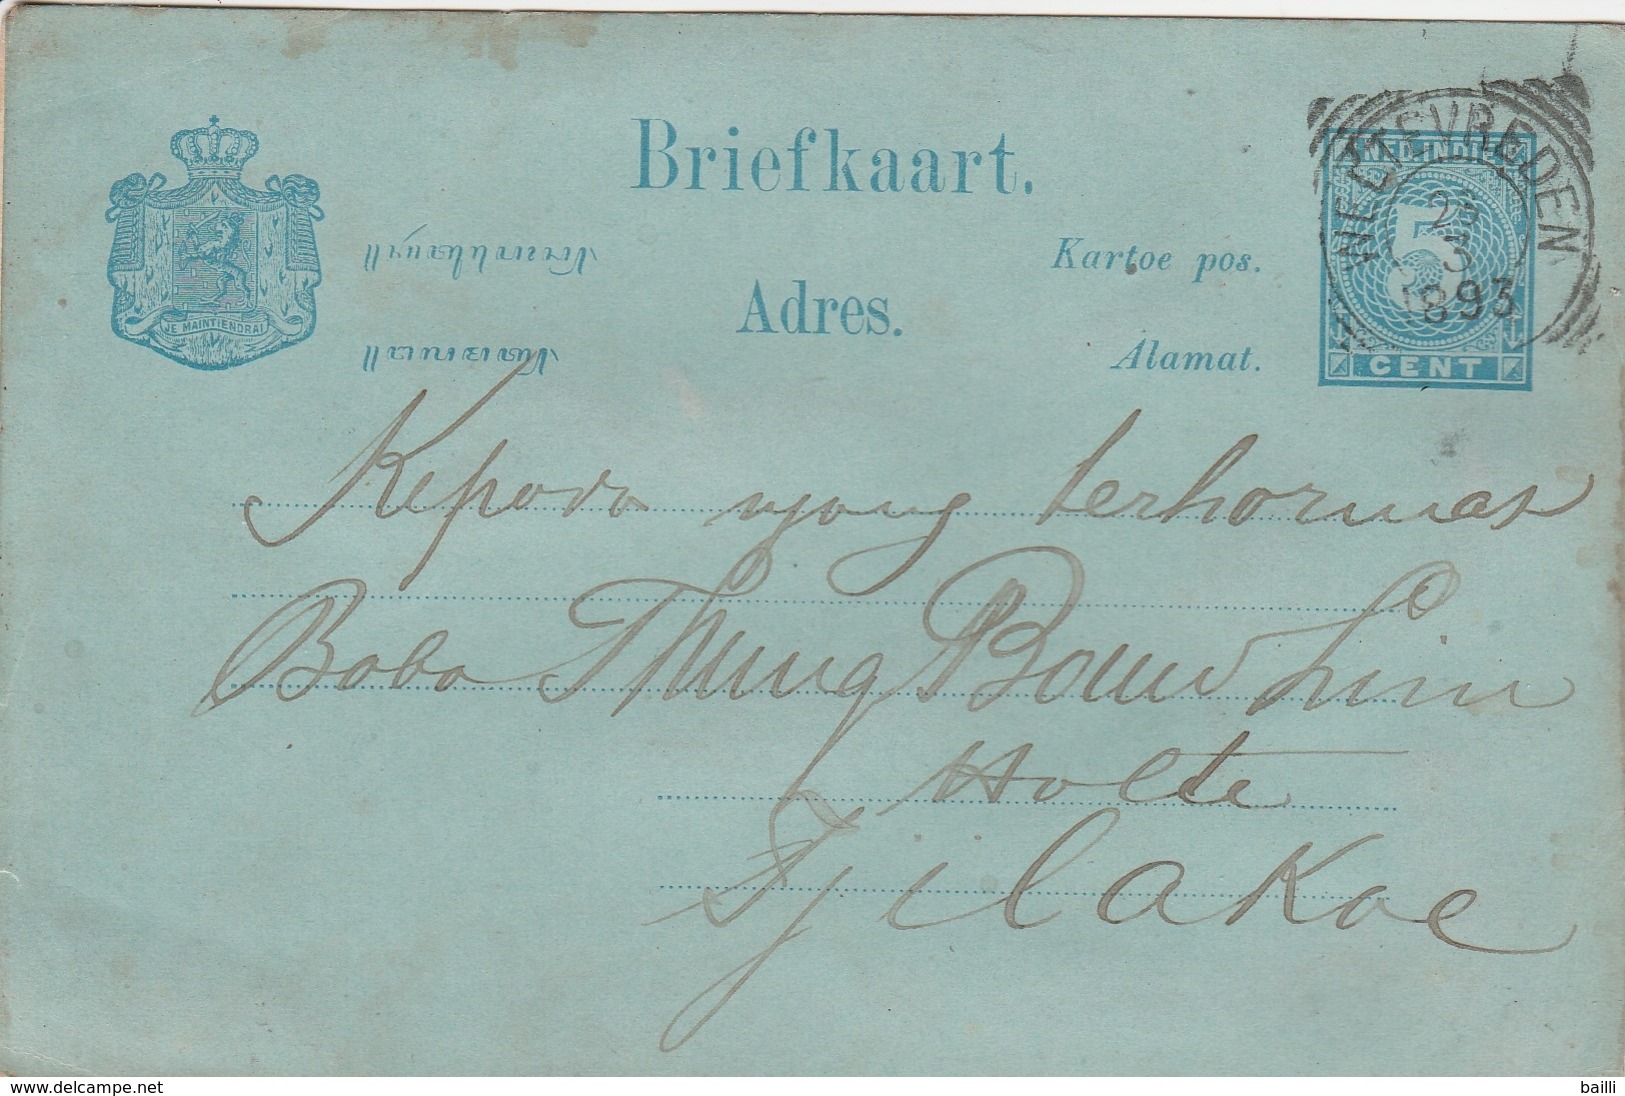 Briefkaart.
Kartoe pos.
Adres.
Alamat.
JE MAINTIENDRAI
NED. INDIE
5
CENT
WELTEVREDEN
3
1893
Kepada njang terhormat
Baba Thung Bouw Lim
Holte
Tjilakoe
www.delcampe.net
bailli